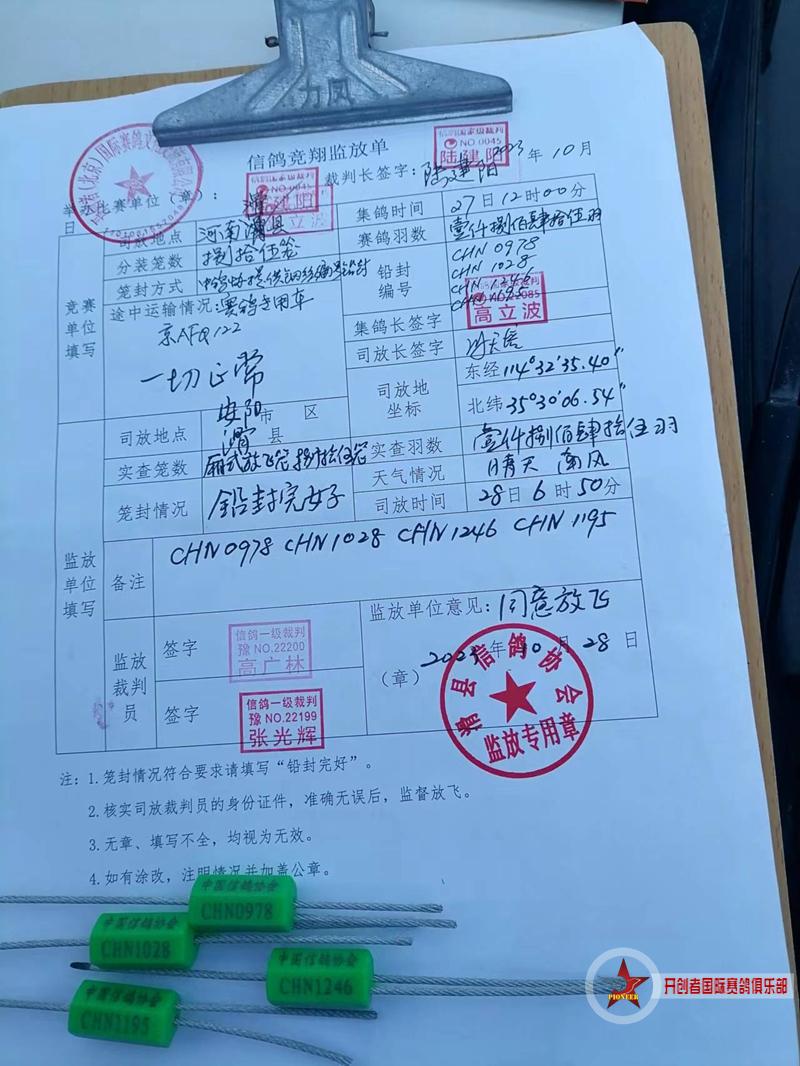 力凤
信鸽竞翔监放单
信鸽国家级裁判
NO.0045
陆建阳
裁判长签字：陆建阳
2023年10月
27日12时00分
举办比赛单位（章）：
日
竞赛单位填写
司放地点
河南滑县
集鸽时间
分装笼数
捌拾伍笼
赛鸽羽数
壹仟捌佰肆拾伍羽
笼封方式
铅封编号
CHN 0978
CHN 1028
CHN 1246
CHN 1195
高立波
途中运输情况：赛鸽专用车
京AFQ122
一切正常
集鸽长签字
司放长签字
司放地坐标
东经114°32′35.40″
北纬35°30′06.54″
监放单位填写
司放地点
安阳市 区
滑县
实查笼数
厢式放飞笼捌拾伍笼
实查羽数
壹仟捌佰肆拾伍羽
天气情况
晴天 南风
笼封情况
铅封完好
司放时间
28日6时50分
备注
CHN0978 CHN1028 CHN1246 CHN1195
监放裁判员
签字
信鸽一级裁判
豫 NO.22200
高广林
签字
信鸽一级裁判
豫 NO.22199
张光辉
监放单位意见：同意放飞
2023年10月28日
（章）
滑县信鸽协会
监放专用章
注：1.笼封情况符合要求请填写“铅封完好”。
2.核实司放裁判员的身份证件，准确无误后，监督放飞。
3.无章、填写不全，均视为无效。
4.如有涂改，注明情况并加盖公章。
中国信鸽协会
CHN0978
中国信鸽协会
CHN1028
中国信鸽协会
CHN1246
中国信鸽协会
CHN1195
PIONEER
开创者国际赛鸽俱乐部